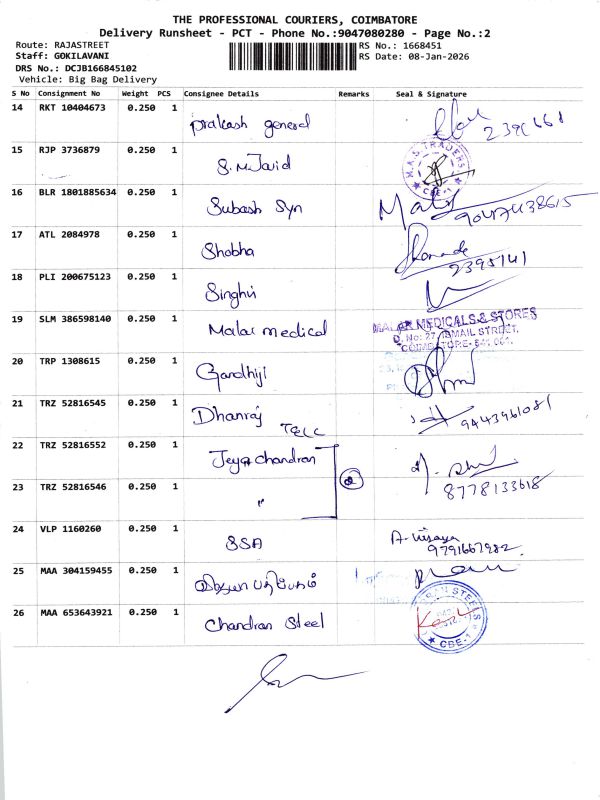 THE PROFESSIONAL COURIERS, COIMBATORE
Delivery Runsheet - PCT - Phone No.:9047080280 - Page No.:2
Route: RAJASTREET
RS No.: 1668451
Staff: GOKILAVANI
RS Date: 08-Jan-2026
DRS No.: DCJB166845102
Vehicle: Big Bag Delivery
S No Consignment No Weight PCS Consignee Details Remarks Seal & Signature
14 RKT 10404673 0.250 1 prakash general
2391661
15 RJP 3736879 0.250 1 S.M.Javid
M.A.S TRADERS
CBE-1
16 BLR 1801885634 0.250 1 Subash Syn
9047438615
17 ATL 2084978 0.250 1 Shobha
2395141
18 PLI 200675123 0.250 1 Singhvi
19 SLM 386598140 0.250 1 Malar medical
MALAR MEDICALS & STORES
D. No: 27, ISMAIL STREET,
COIMBATORE- 641 001.
20 TRP 1308615 0.250 1 Gandhiji
21 TRZ 52816545 0.250 1 Dhanraj
9443961081
22 TRZ 52816552 0.250 1 Jeyachandran
2
8778133618
23 TRZ 52816546 0.250 1 "
24 VLP 1160260 0.250 1 SSA
A. Vijaya
9791667982
25 MAA 304159455 0.250 1
26 MAA 653643921 0.250 1 Chandran Steel
CBE-1